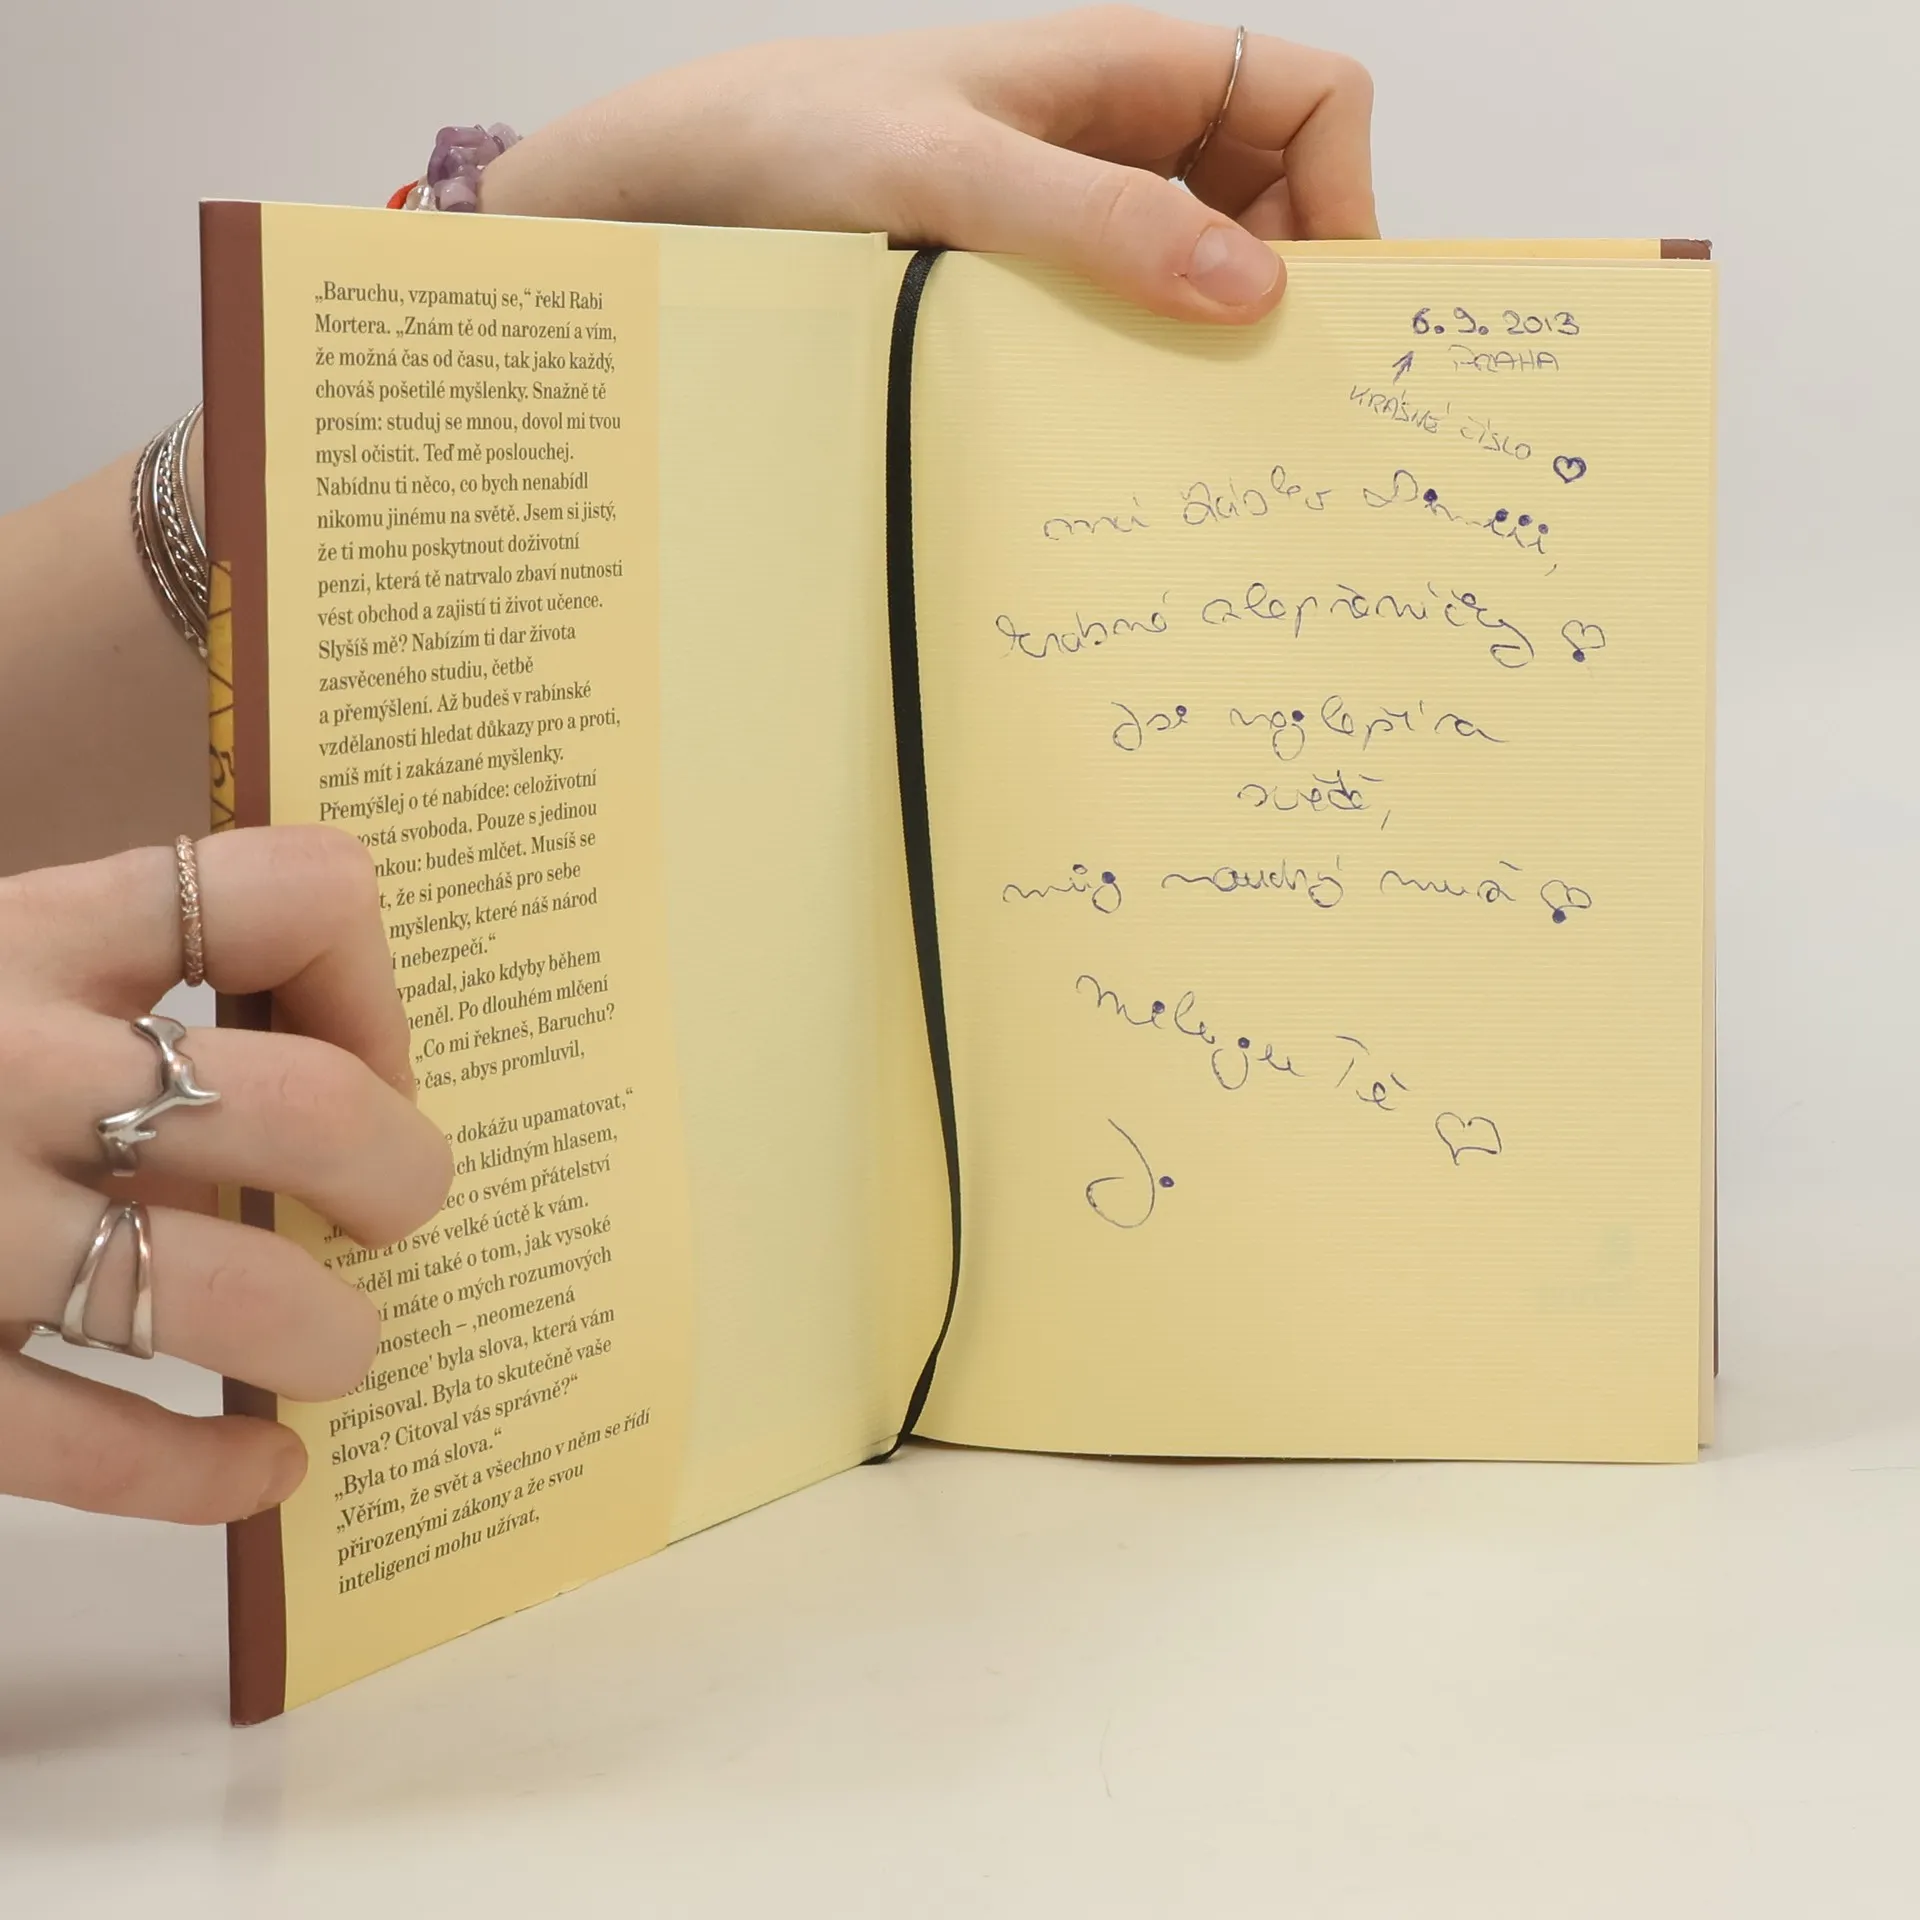 „Baruchu, vzpamatuj se,“ řekl Rabi
Mortera. „Znám tě od narození a vím,
že možná čas od času, tak jako každý,
chováš pošetilé myšlenky. Snažně tě
prosím: studuj se mnou, dovol mi tvou
mysl očistit. Teď mě poslouchej.
Nabídnu ti něco, co bych nenabídl
nikomu jinému na světě. Jsem si jistý,
že ti mohu poskytnout doživotní
penzi, která tě natrvalo zbaví nutnosti
vést obchod a zajistí ti život učence.
Slyšíš mě? Nabízím ti dar života
zasvěceného studiu, četbě
a přemýšlení. Až budeš v rabínské
vzdělanosti hledat důkazy pro a proti,
smíš mít i zakázané myšlenky.
Přemýšlej o té nabídce: celoživotní
svoboda. Pouze s jedinou
budeš mlčet. Musíš se
že si ponecháš pro sebe
myšlenky, které náš národ
nebezpečí.“
jako kdyby během
Po dlouhém mlčení
„Co mi řekneš, Baruchu?
čas, abys promluvil,
dokážu upamatovat,“
klidným hlasem,
o svém přátelství
s vámi a o své velké úctě k vám.
mi také o tom, jak vysoké
máte o mých rozumových
– ‚neomezená
byla slova, která vám
připisoval. Byla to skutečně vaše
slova? Citoval vás správně?“
„Byla to má slova.“
„Věřím, že svět a všechno v něm se řídí
přirozenými zákony a že svou
inteligenci mohu užívat,
6. 9. 2013
PRAHA
KRÁSNÉ ČÍSLO
Jsi
světě,
můj moudrý muž
Miluju Tě
J.